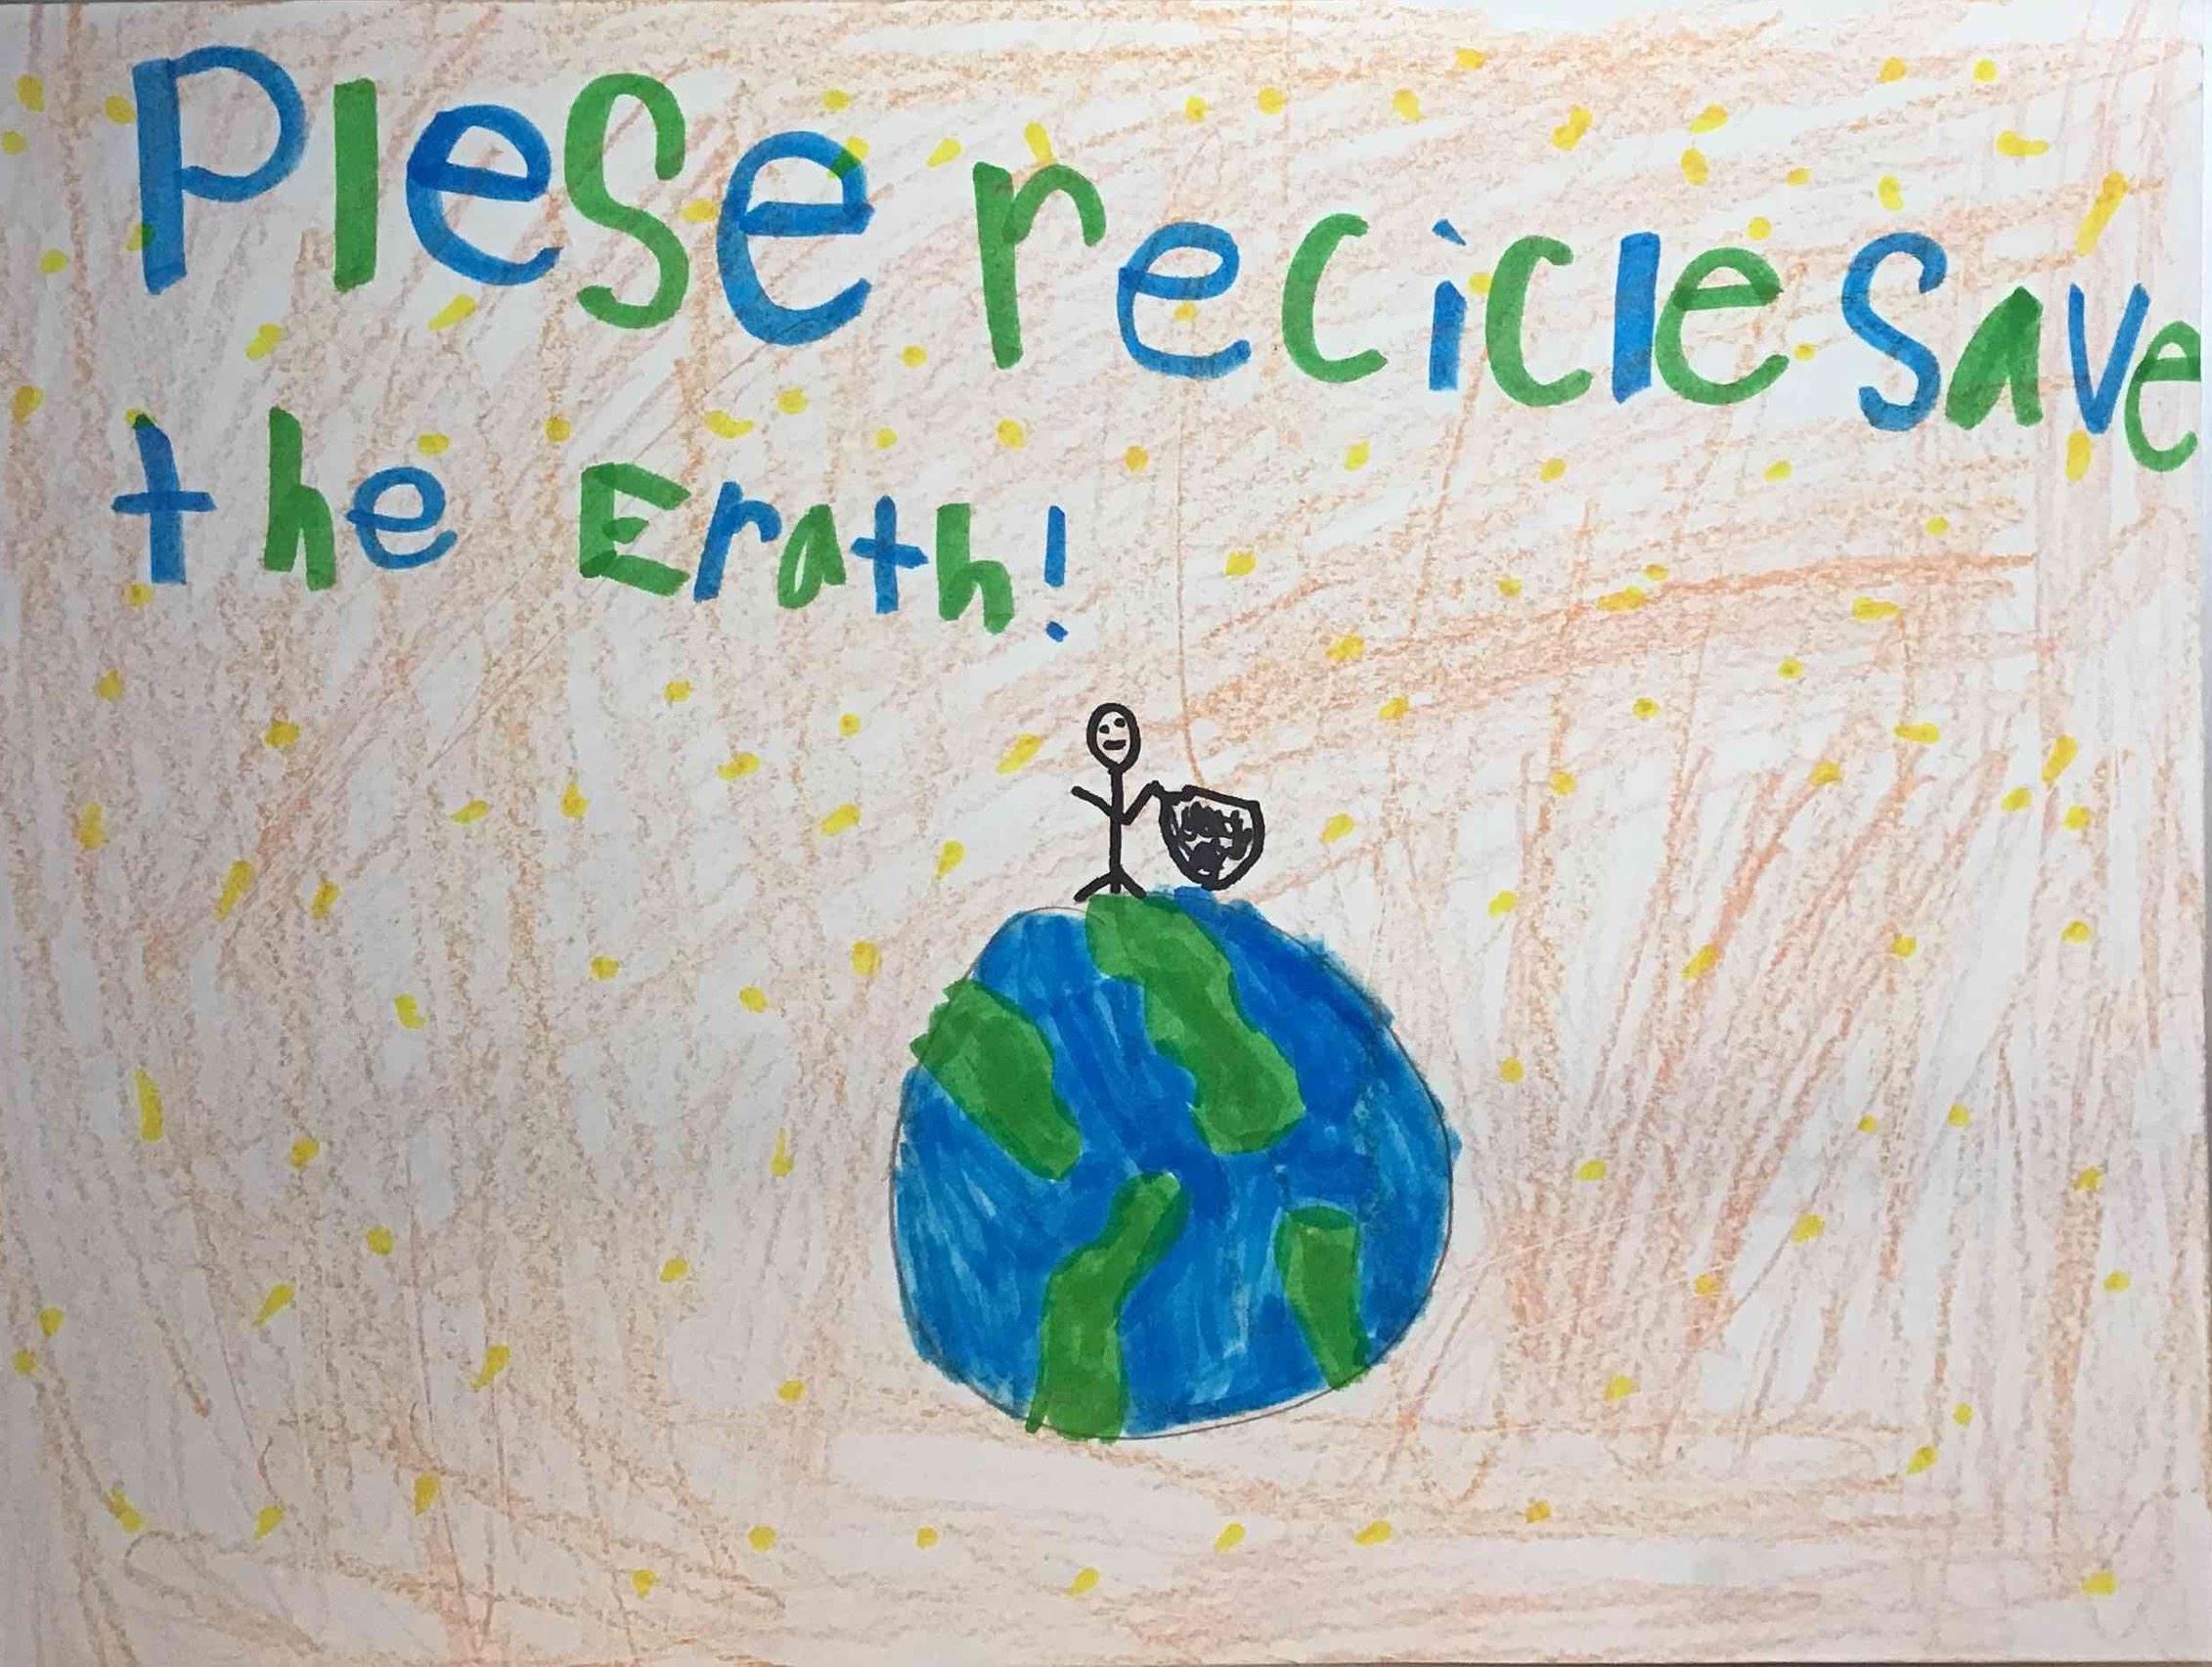 Plese recicle save
the Erath!